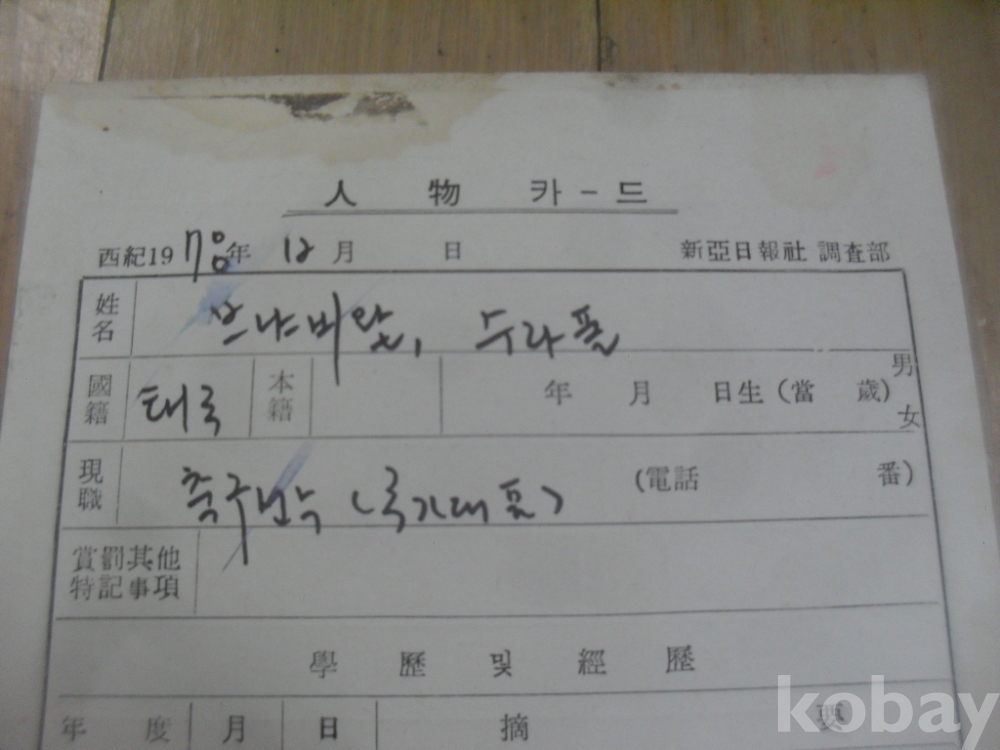 人物카-드
西紀19 70年 12月 日 新亞日報社 調査部
姓名 브냐비왙, 수라폴
國籍 태국 本籍 年 月 日生 (當 歲) 男 女
現職 축구선수 (국가대표) (電話 番)
賞罰其他特記事項
學歷 및 經歷
年度 月 日 摘要
kobay